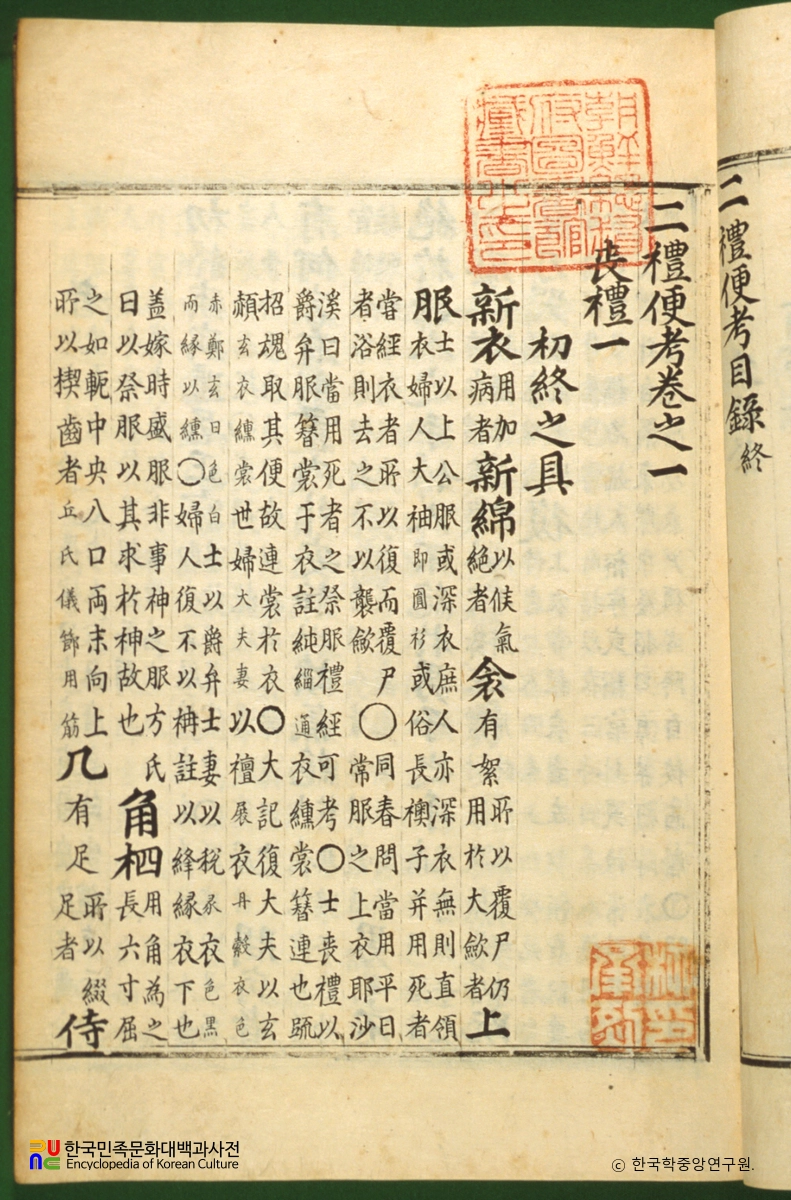 二禮便考目錄 終
朝鮮總督府圖書館藏書之印
二禮便考卷之一
喪禮一
初終之具
新衣 用加
病者 新綿 以候氣
絶者 衾 有絮 所以覆尸仍
用於大歛者 上
服 士以上公服或深衣庶人亦深衣無則直領
衣婦人大袖即圓衫或俗長襖子并用死者
嘗經衣者所以復而覆尸〇同春問當用平日
者浴則去之不以襲歛常服之上衣耶沙
溪曰當用死者之祭服禮經可考〇士喪禮以
爵弁服簪裳于衣註純緇通衣纁裳簪連也䟽
招魂取其便故連裳於衣〇大記復大夫以玄
頳玄衣纁裳世婦大夫妻以襢展衣丹縠衣色
赤鄭玄曰色白士以爵弁士妻以稅彖衣色黑
而緣以纁〇婦人復不以袡註以絳緣衣下也
盖嫁時盛服非事神之服方氏
曰以祭服以其求於神故也 角柶 用角為之
長六寸屈
之如軛中央八口两末向上
所以楔齒者丘氏儀節用筯 几 有足 所以綴
足者 侍
한국민족문화대백과사전
Encyclopedia of Korean Culture
ⓒ 한국학중앙연구원.